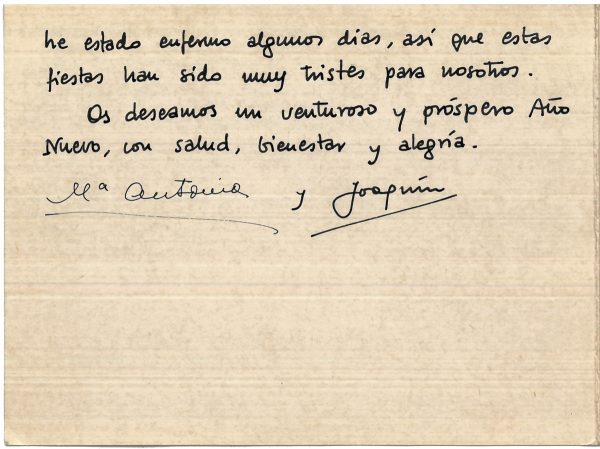 he estado enfermo algunos días, así que estas
fiestas han sido muy tristes para nosotros.
Os deseamos un venturoso y próspero Año
Nuevo, con salud, bienestar y alegría.
Mª Antonia y Joaquín